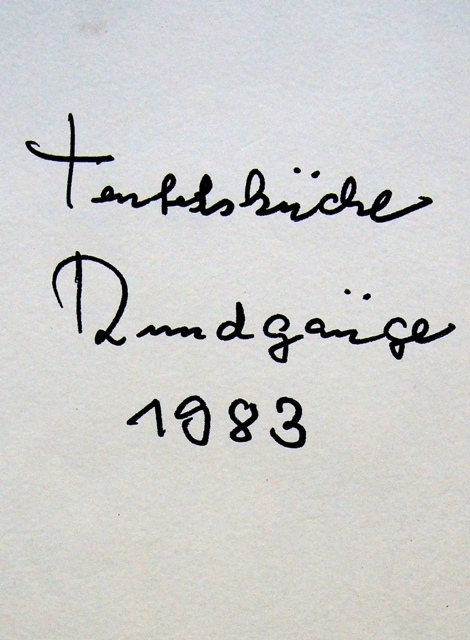 Teufelsküche
Rundgänge
1983